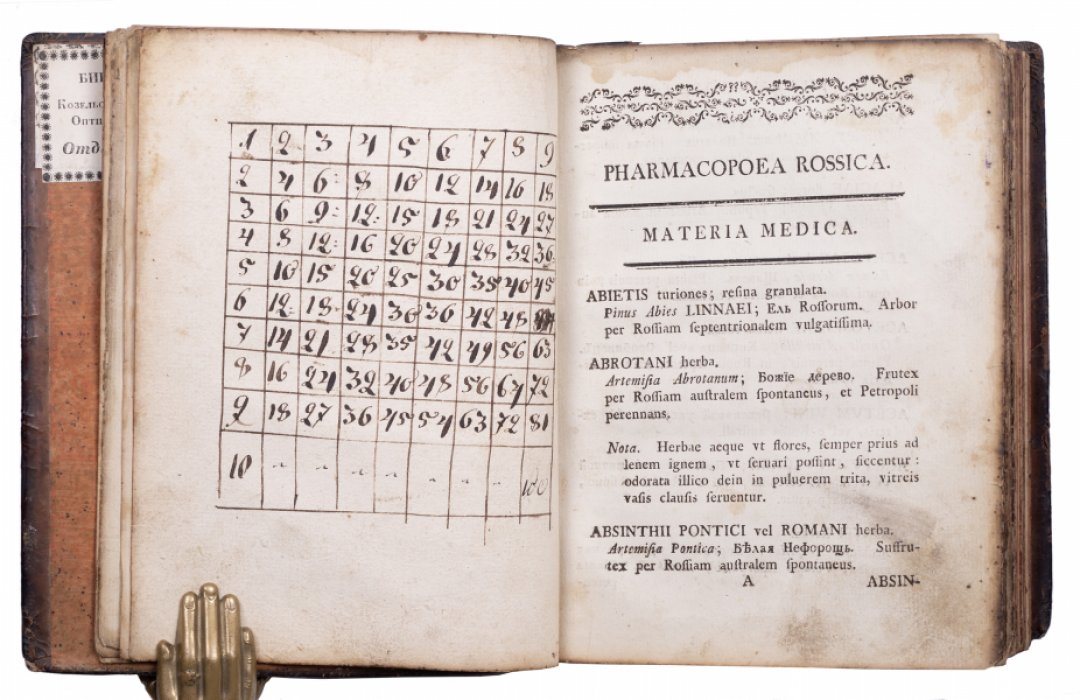 БИБ
Козельс
Опти
Отд.
1 2 3 4 5 6 7 8 9
2 4 6: 8 10 12 14 16 18
3 6 9: 12: 15 18 21 24 27
4 8 12: 16 20 24 28 32 36
5 10 15 20 25 30 35 40 45
6 12 18 24 30 36 42 48
7 14 21 28 35 42 49 56 63
8 16 24 32 40 48 56 64 72
9 18 27 36 45 54 63 72 81
10 100
PHARMACOPOEA ROSSICA.
MATERIA MEDICA.
ABIETIS turiones; reſina granulata.
Pinus Abies LINNAEI; Ель Roſſorum. Arbor
per Roſſiam ſeptentrionalem vulgatiſſima.
ABROTANI herba.
Artemiſia Abrotanum; Божїе дерево. Frutex
per Roſſiam auſtralem ſpontaneus, et Petropoli
perennans.
Nota. Herbae aeque vt flores, ſemper prius ad
lenem ignem, vt ſeruari poſſint, ſiccentur:
odorata illico dein in puluerem trita, vitreis
vaſis clauſis ſeruentur.
ABSINTHII PONTICI vel ROMANI herba.
Artemiſia Pontica; Бѣлая Нефорощь. Suffru-
tex per Roſſiam auſtralem ſpontaneus.
A ABSIN-